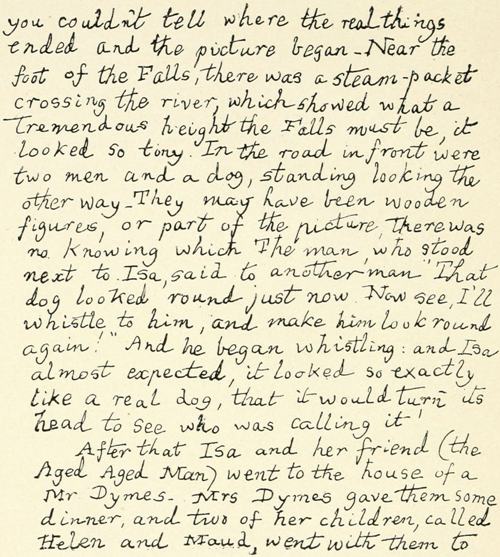 you couldn't tell where the real things
ended and the picture began - Near the
foot of the Falls, there was a steam-packet
crossing the river, which showed what a
tremendous height the Falls must be, it
looked so tiny. In the road in front were
two men and a dog, standing looking the
other way - They may have been wooden
figures, or part of the picture, there was
no knowing which The man, who stood
next to Isa, said to another man "That
dog looked round just now. Now see, I'll
whistle to him, and make him look round
again!" And he began whistling: and Isa
almost expected, it looked so exactly
like a real dog, that it would turn its
head to see who was calling it!
After that Isa and her friend (the
Aged Aged Man) went to the house of a
Mr Dymes - Mrs Dymes gave them some
dinner, and two of her children, called
Helen and Maud, went with them to